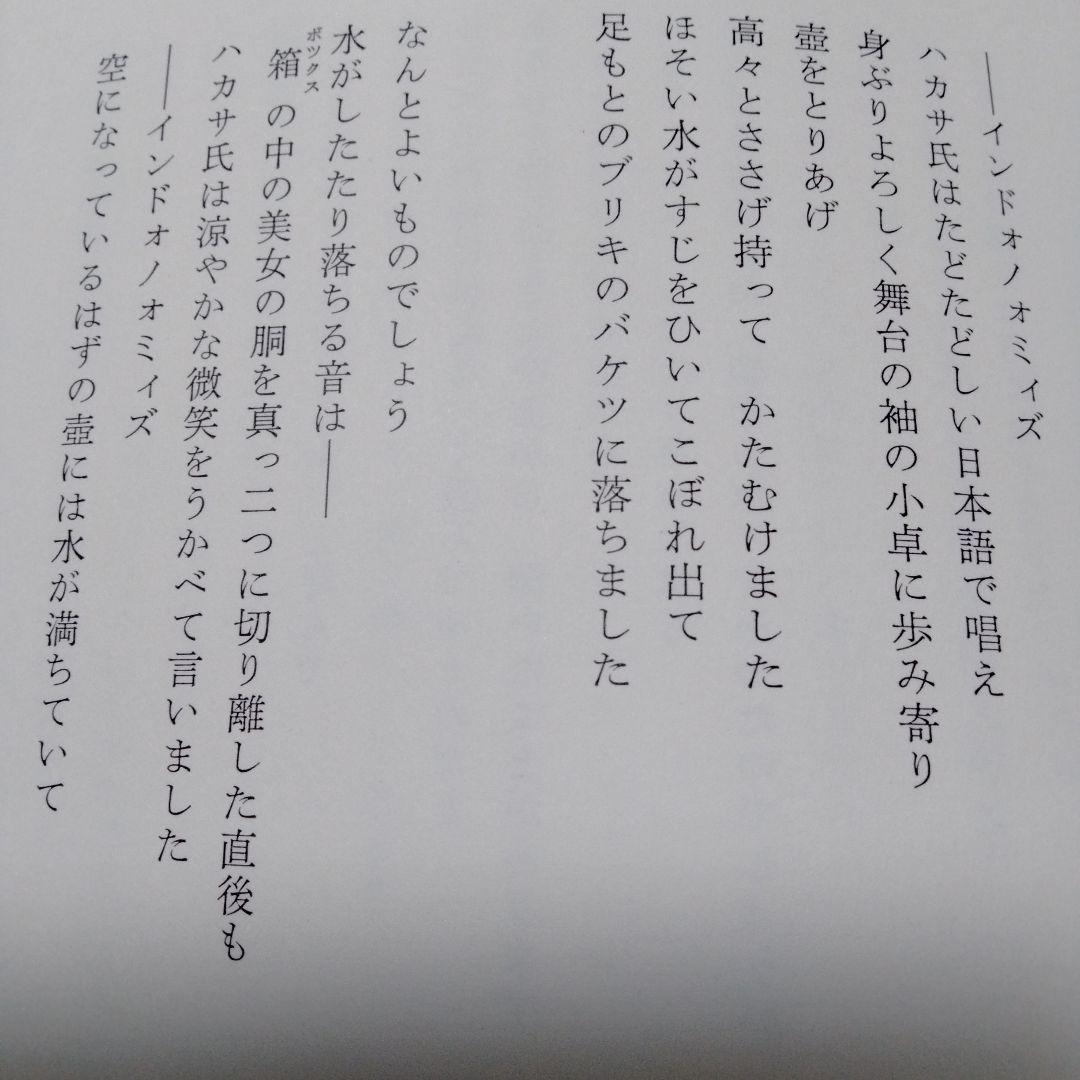 ――インドォノォミィズ
ハカサ氏はたどたどしい日本語で唱え
身ぶりよろしく舞台の袖の小卓に歩み寄り
壺をとりあげ
高々とささげ持って　かたむけました
ほそい水がすじをひいてこぼれ出て
足もとのブリキのバケツに落ちました
なんとよいものでしょう
水がしたたり落ちる音は――
ボックス
箱の中の美女の胴を真っ二つに切り離した直後も
ハカサ氏は涼やかな微笑をうかべて言いました
――インドォノォミィズ
空になっているはずの壺には水が満ちていて